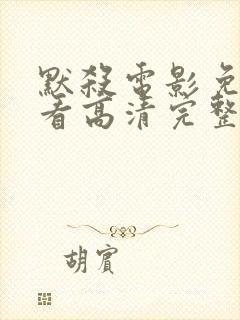 默殺電影免
看高清完整
胡賓